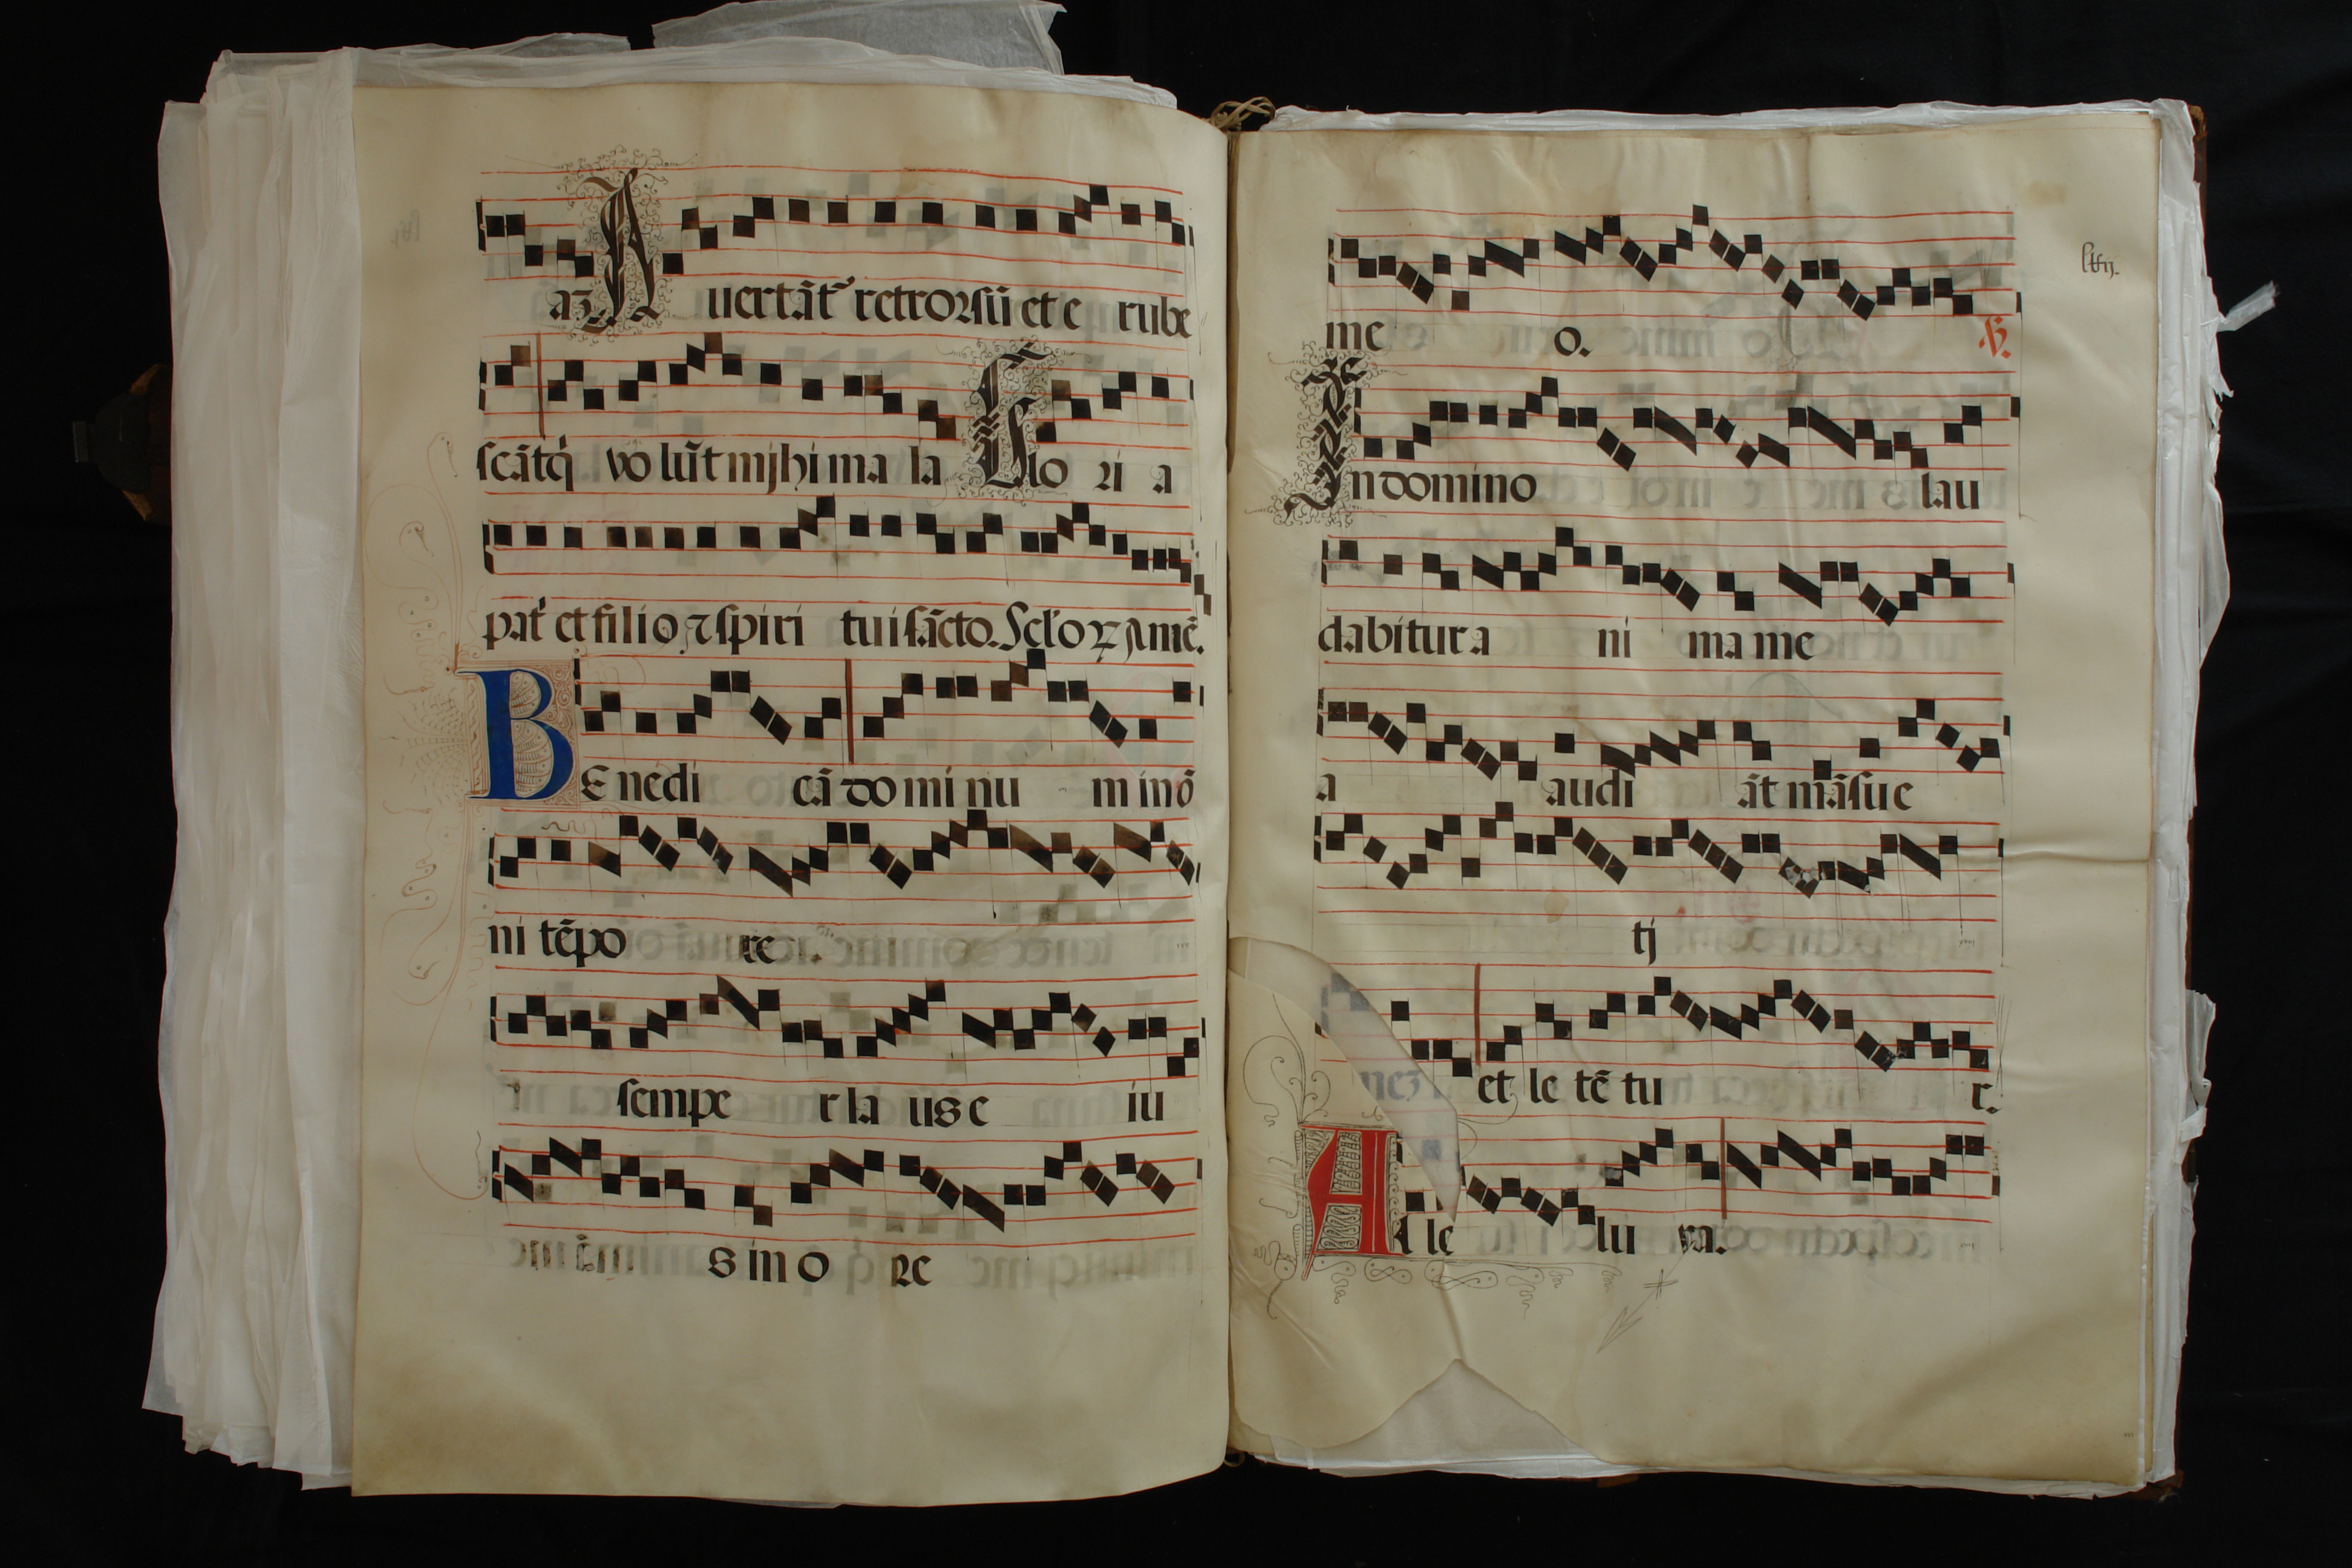 az Auertāt᷒ retrorsū et e rube
scātq̄ volūt mjhi ma la Glo ri a
pat̄ et filio ⁊ spiri tui sācto. Sc̄loꝝ Amē.
BEnedi cā do mi nu m in ō
ni tēpo re .
sempe r la us e iu
s in o re
lxij.
me o. ℣.
In domino lau
dabitur a ni ma me
a audi āt māsue
tj
nez et le tē tu r.
A le lu ya.